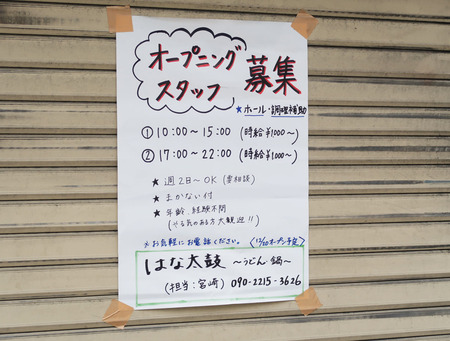 オープニング
スタッフ 募集
★ ホール・調理補助
① 10:00〜15:00 (時給¥1000〜)
② 17:00〜22:00 (時給¥1000〜)
★ 週2日〜OK (要相談)
★ まかない付
★ 年齢、経験不問
(やる気のある方大歓迎!!)
※お気軽にお電話ください。 〈12/10オープン予定〉
はな太鼓 〜うどん・鍋〜
(担当:宮崎) 090-2215-3626